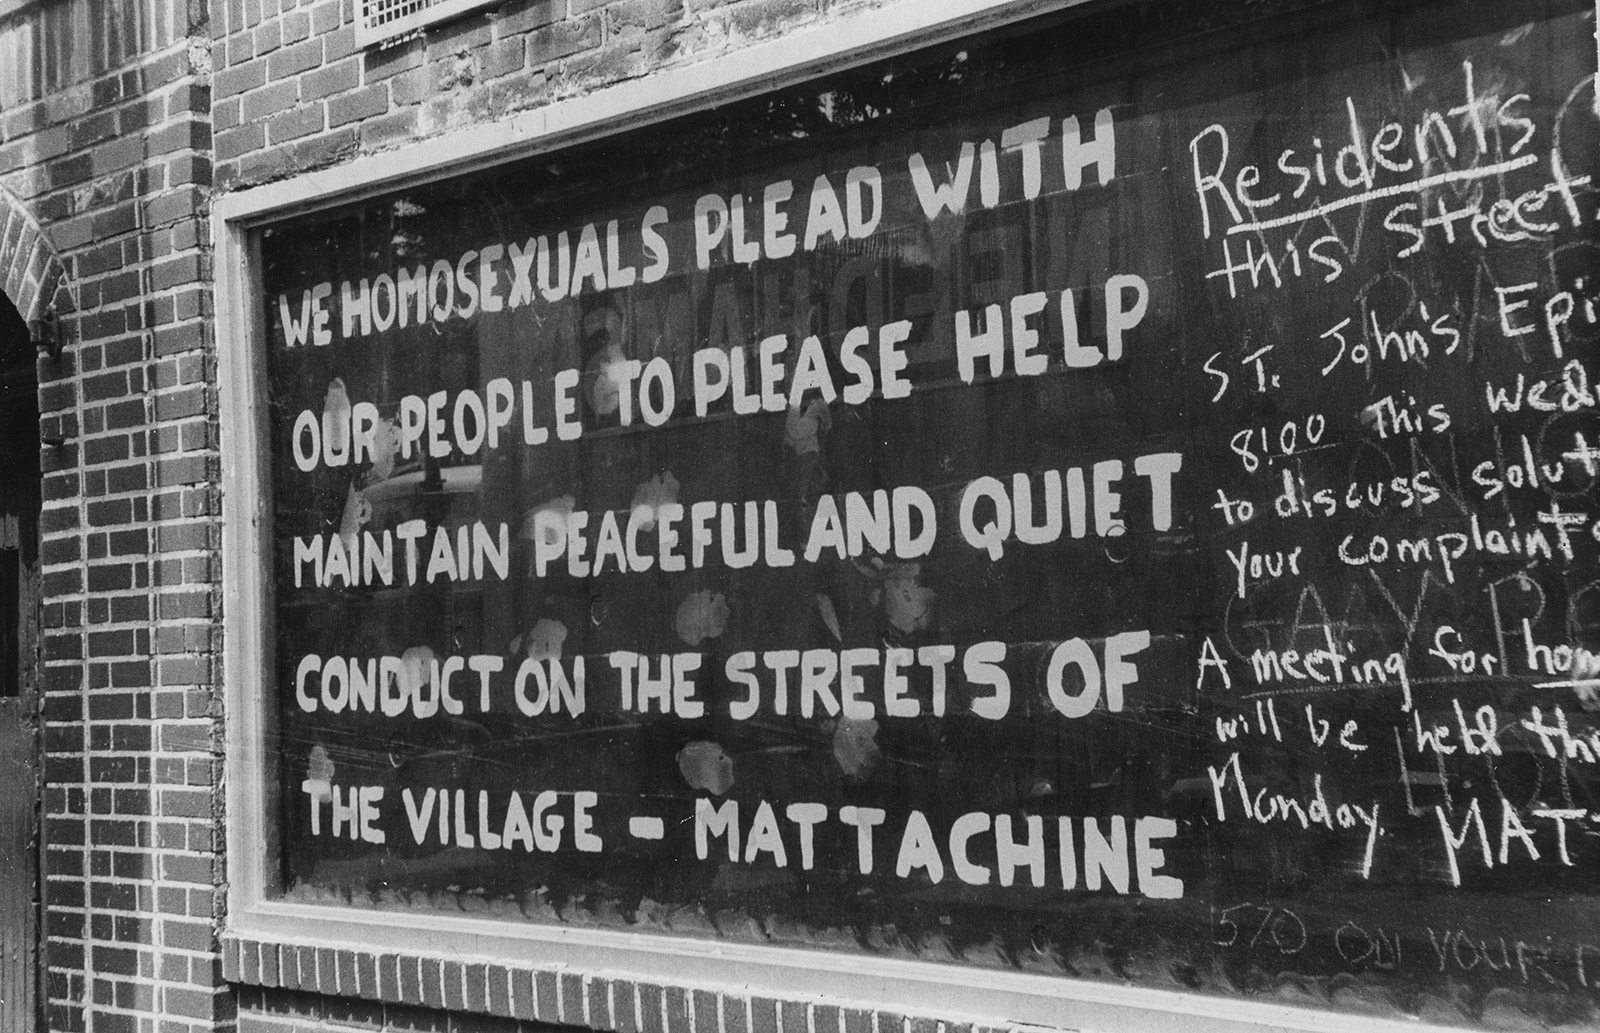 WE HOMOSEXUALS PLEAD WITH
OUR PEOPLE TO PLEASE HELP
MAINTAIN PEACEFUL AND QUIET
CONDUCT ON THE STREETS OF
THE VILLAGE – MATTACHINE
Residents
this street
ST. John's Epi
8:00 This Wed
to discuss solut
your complaint
A meeting for hom
will be held thi
Monday. MATT